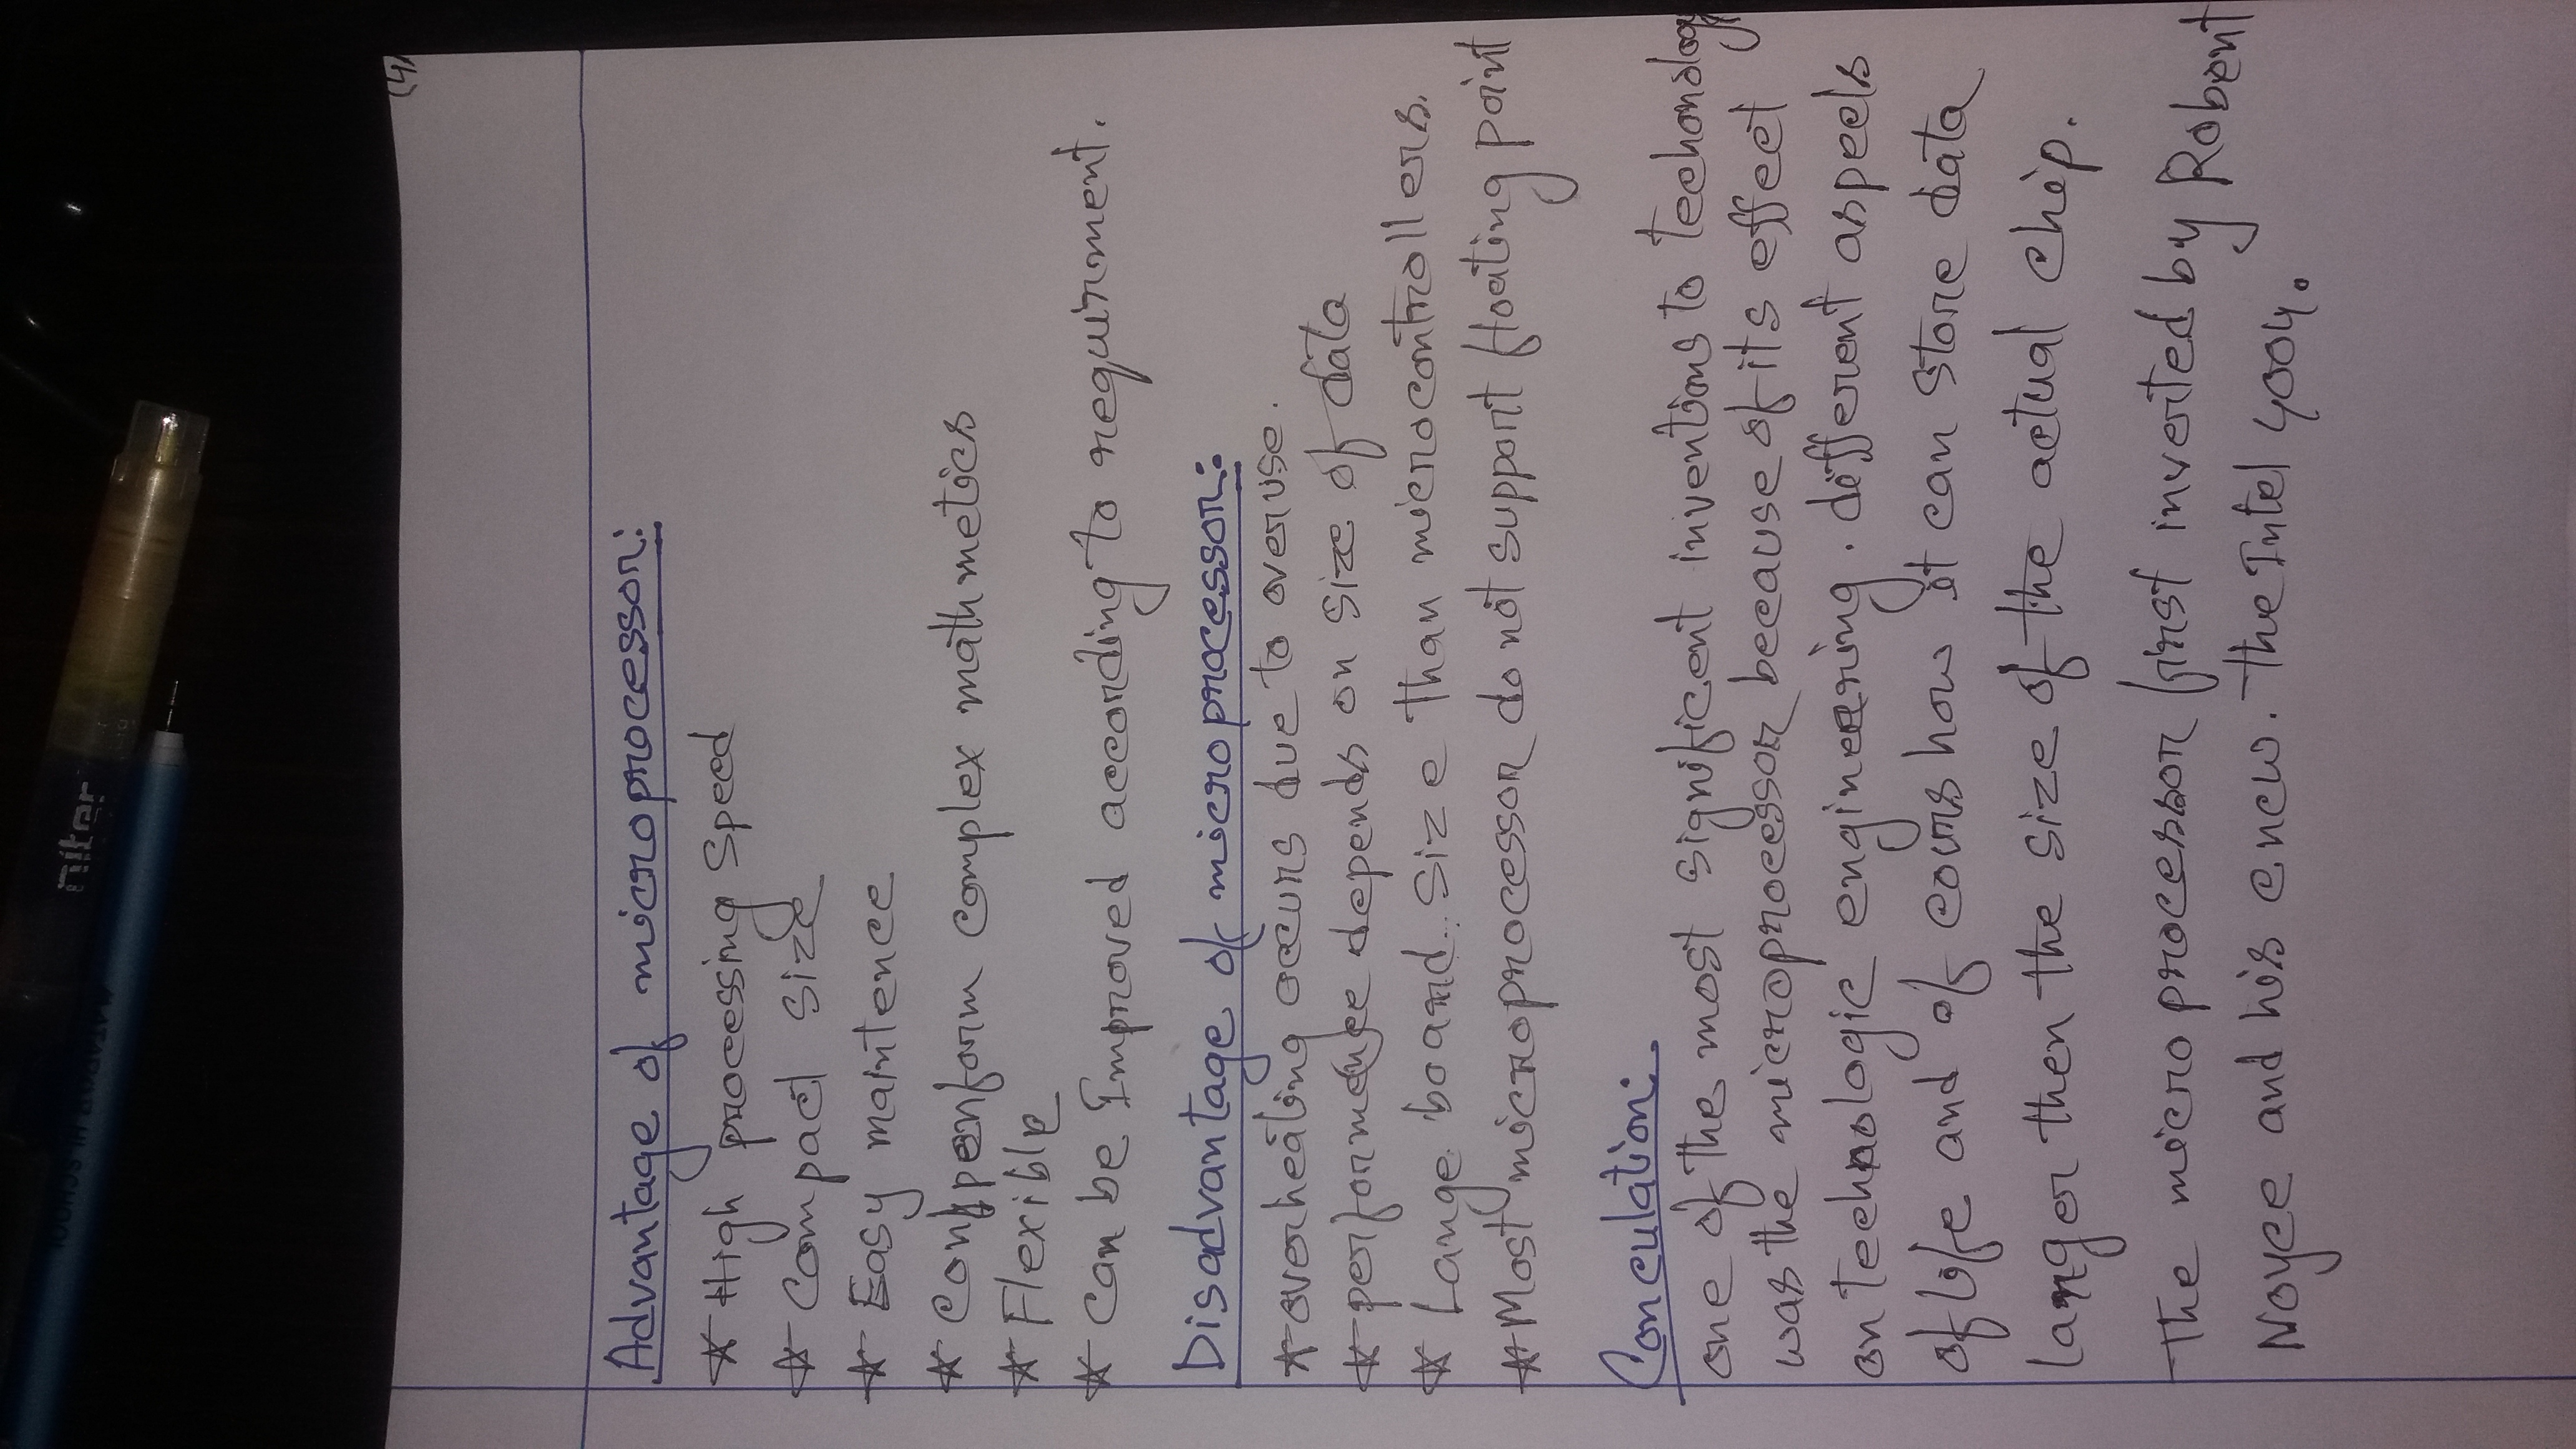 niter
MATADOR HI SCHOOL
(4)
Advantage of microprocessor:
* High processing speed
* Compact size
* Easy maintence
* Can perform complex mathmetics
* Flexible
* Can be Improved according to requirment.
Disadvantage of microprocessor:
* overheating occurs due to overuse.
* performence depends on size of data
* Large board size than microcontrollers.
* Most microprocessor do not support floating point
Conculation:
one of the most significent inventions to techonology
was the microprocessor because of its effect
on technologic engineering. different aspects
of life and of cours how it can store data
larger then the size of the actual chip.
The microprocessor first inverted by Robert
Noyce and his crew. The Intel 4004.